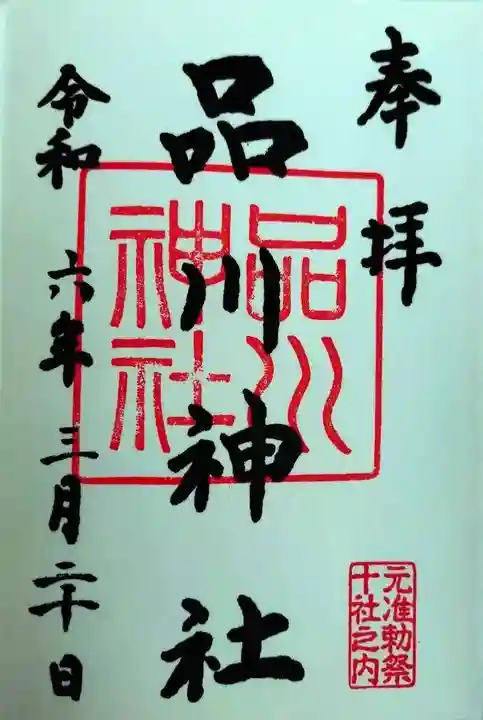 奉拝
品川神社
品川
神社
元准勅祭
十社之内
令和六年三月二十日